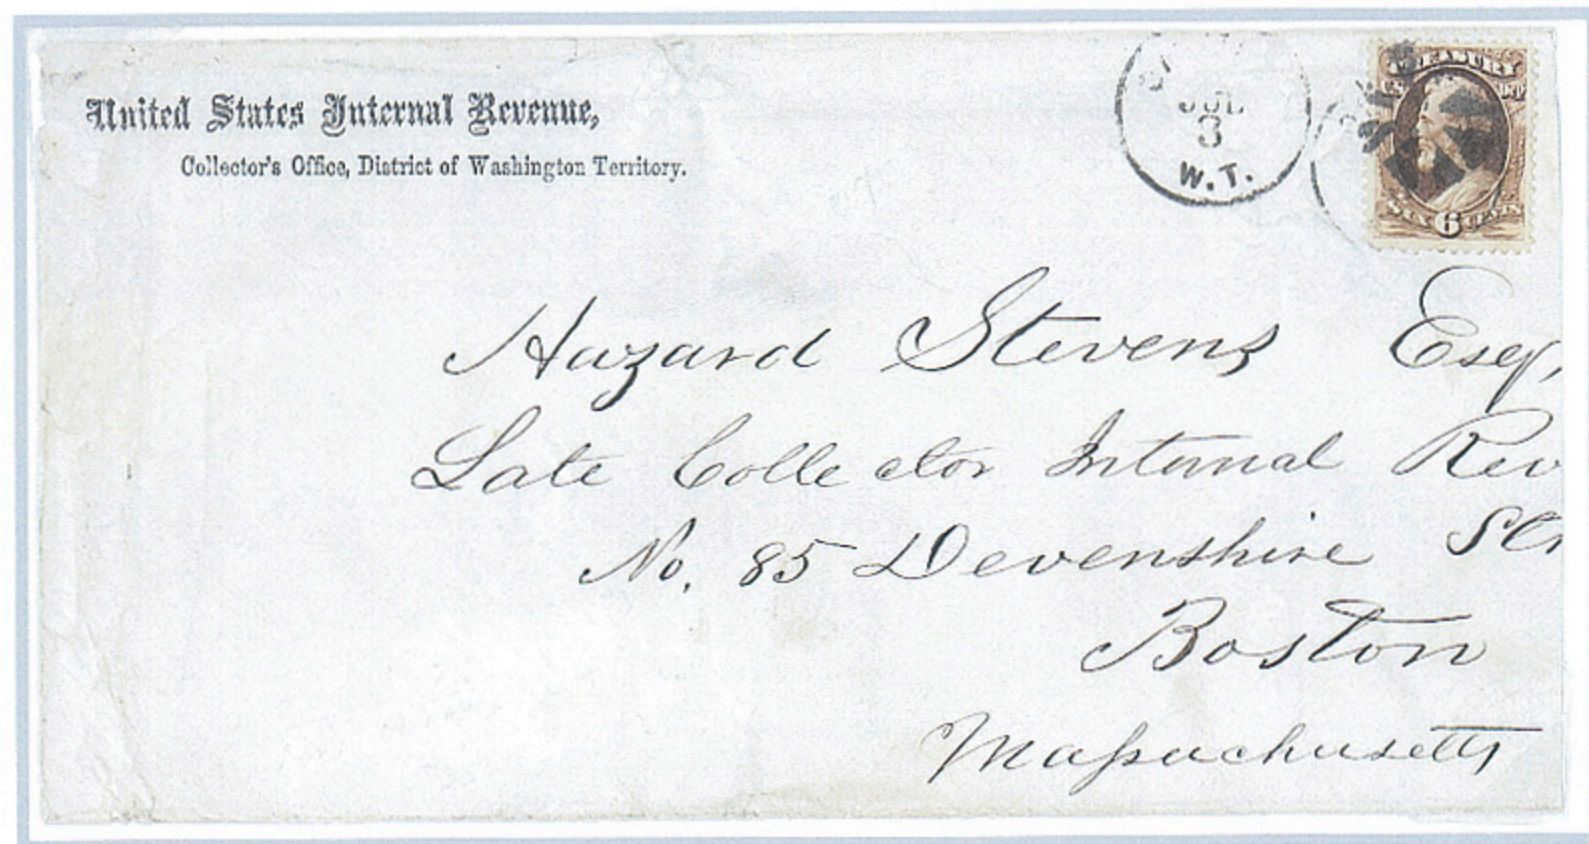 United States Internal Revenue,
Collector's Office, District of Washington Territory.
JUL
3
W.T.
TREASURY
U.S. DEPT
SIX 6 CENTS
Hazard Stevens Esq,
Late Collector Internal Rev
No. 85 Devenshire Str
Boston
Massachusetts